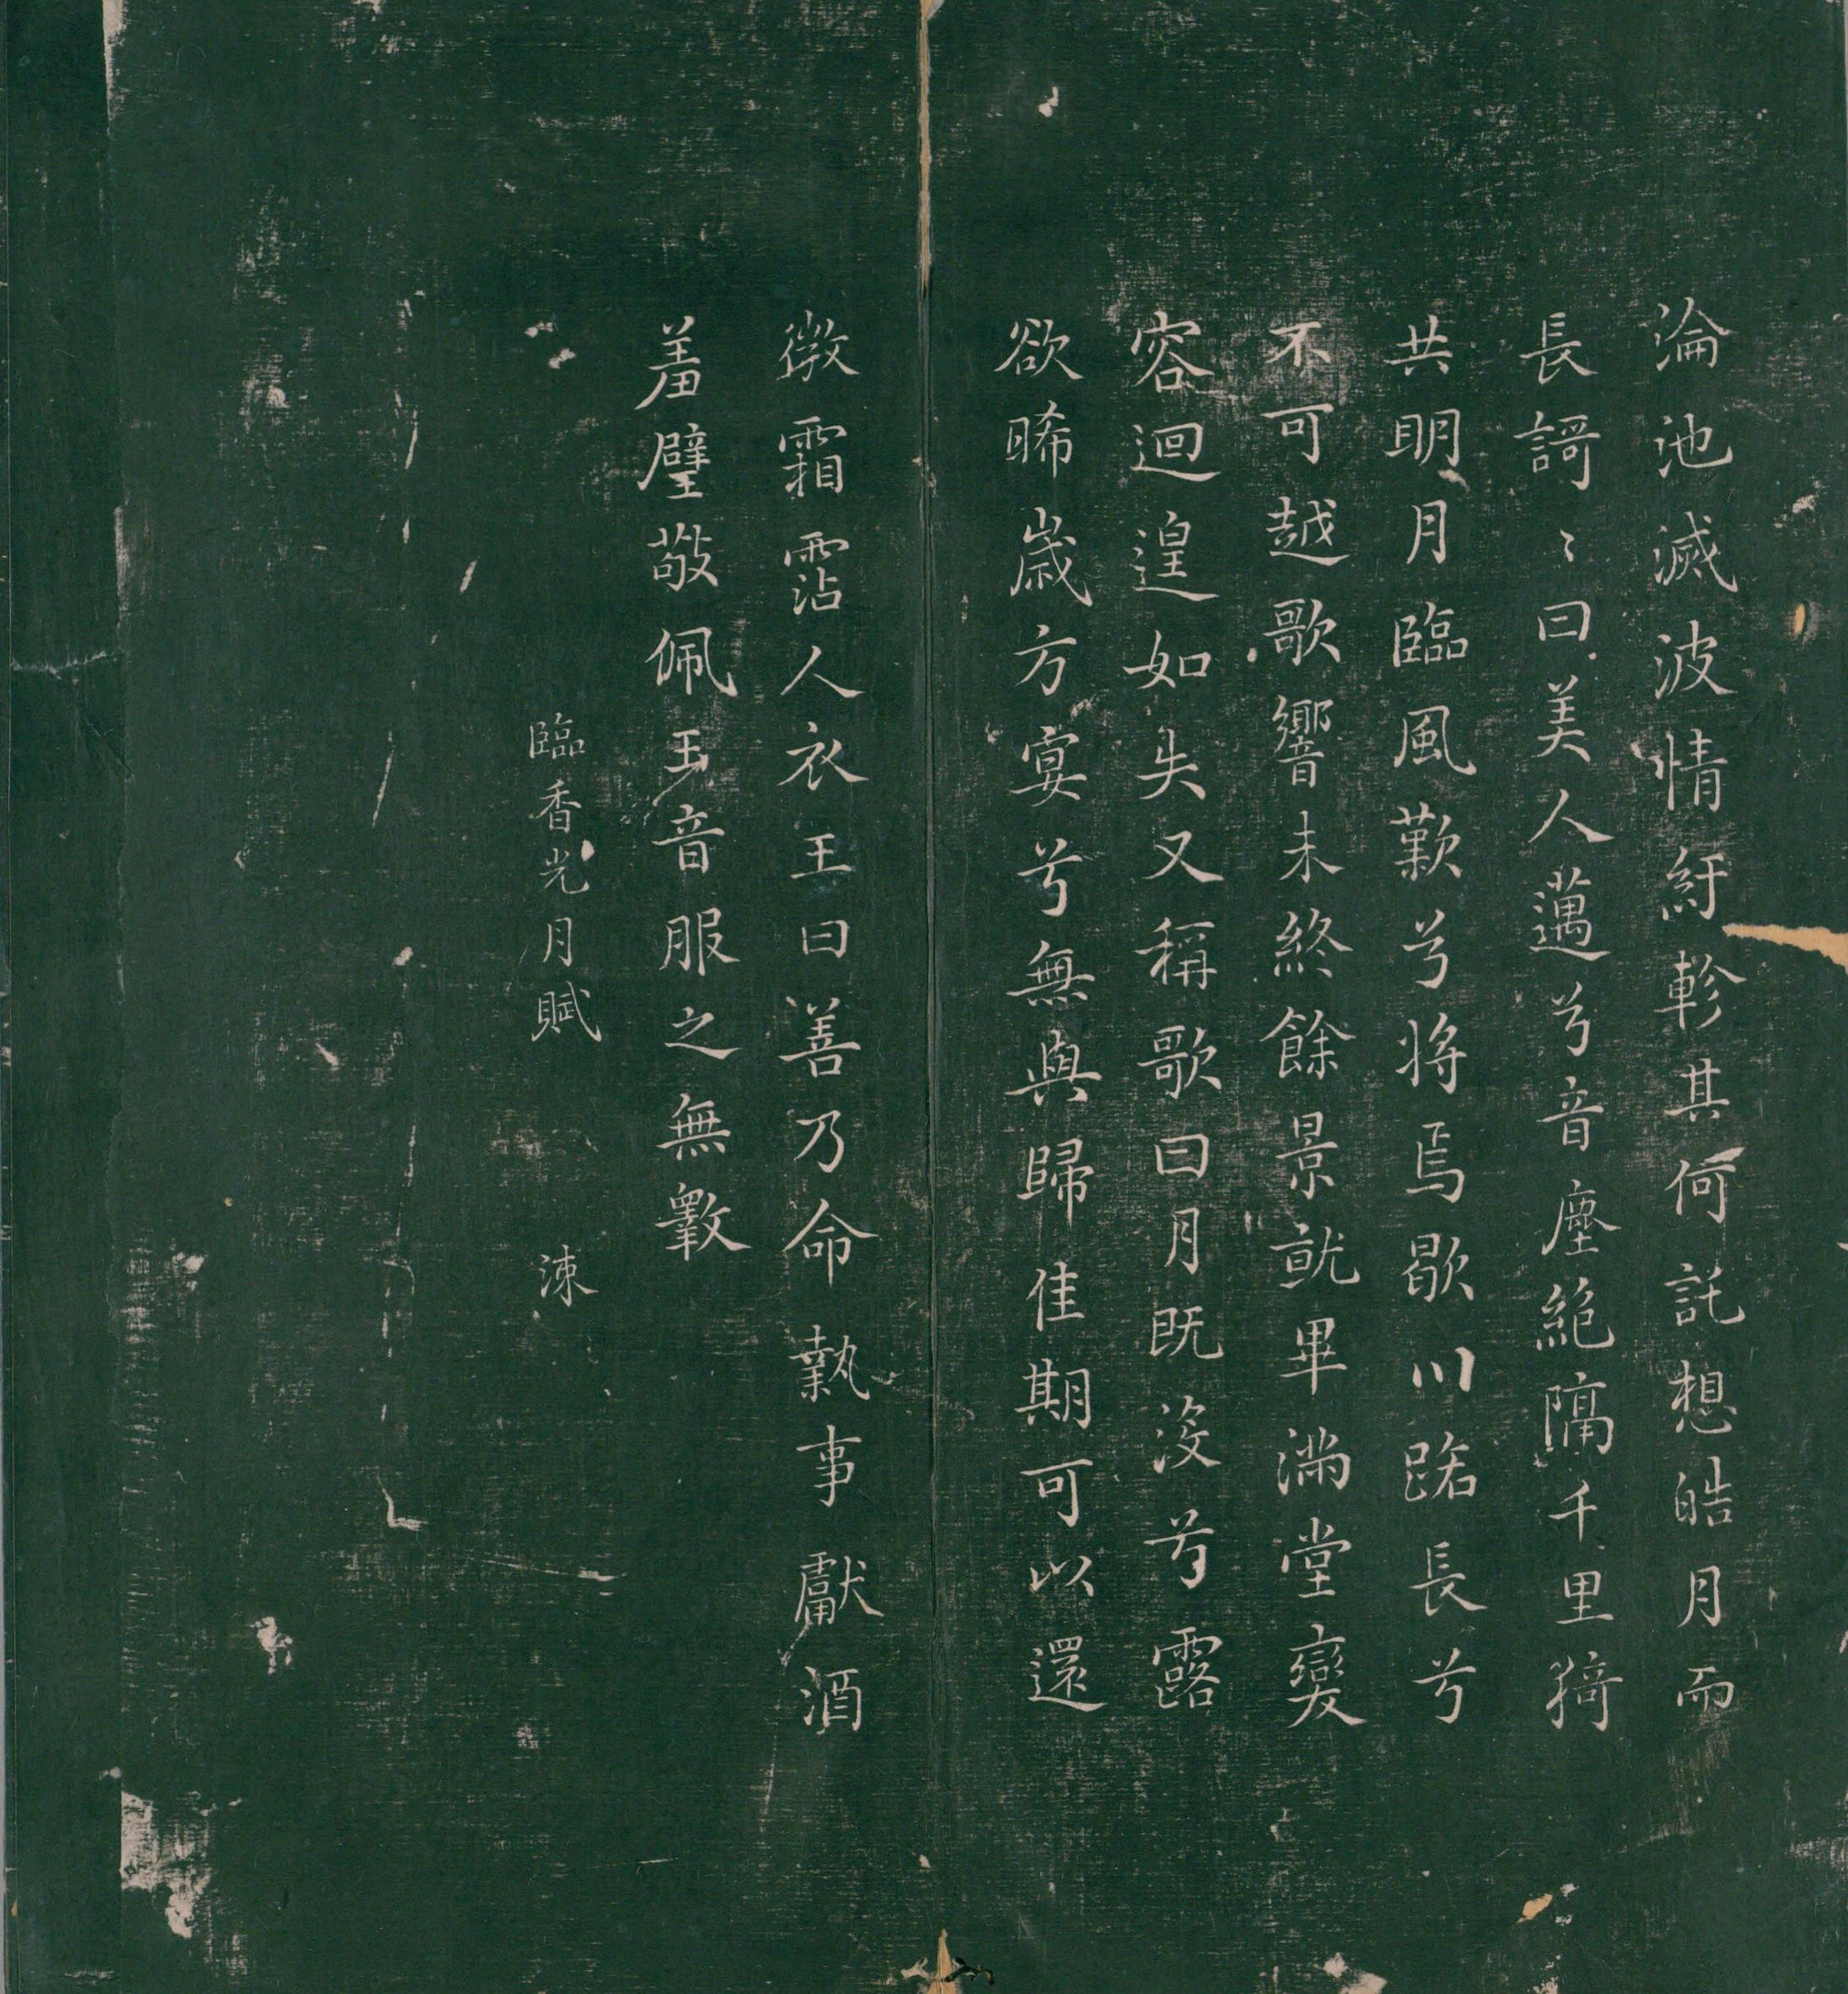 淪池滅波情紆軫其何託想皓月而
長謌〻曰美人邁兮音塵絕隔千里猗
共明月臨風歎兮将焉歇川路長兮
不可越歌響未終餘景就畢滿堂變
容迴遑如失又稱歌曰月既沒兮露
欲晞歲方宴兮無與歸佳期可以還
徵霜霑人衣王曰善乃命執事獻酒
羞璧敬佩玉音服之無斁
臨香光月賦 涑